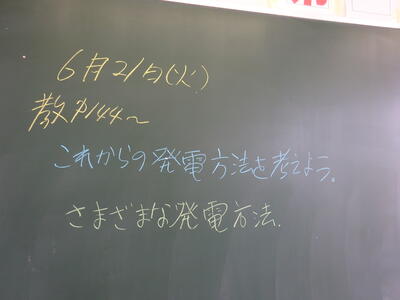 6月21日(火)
教P144~
これからの発電方法を考えよう。
さまざまな発電方法.